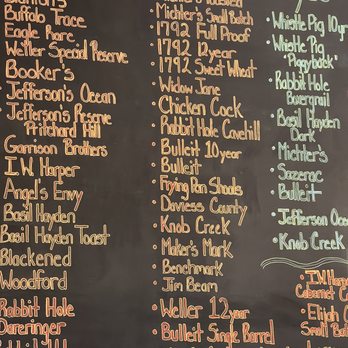 Buffalo Trace
Eagle Rare
Weller Special Reserve
Booker's
Jefferson's Ocean
Jefferson's Reserve
Pritchard Hill
Garrison Brothers
I.W. Harper
Angel's Envy
Basil Hayden
Basil Hayden Toast
Blackened
Woodford
Rabbit Hole
Dareringer
Michter's Small Batch
1792 Full Proof
1792 12 year
1792 Sweet Wheat
Widow Jane
Chicken Cock
Rabbit Hole Cavehill
Bulleit 10 year
Bulleit
Frying Pan Shoals
Daviess County
Knob Creek
Maker's Mark
Benchmark
Jim Beam
Weller 12 year
Bulleit Single Barrel
Whistle Pig 10 yr
Whistle Pig
"Piggyback"
Rabbit Hole
Boxergrail
Basil Hayden
Dark
Michter's
Sazerac
Bulleit
Jefferson Ocea
Knob Creek
I.W. Har
Cabernet C
Elijah C
Small Ba